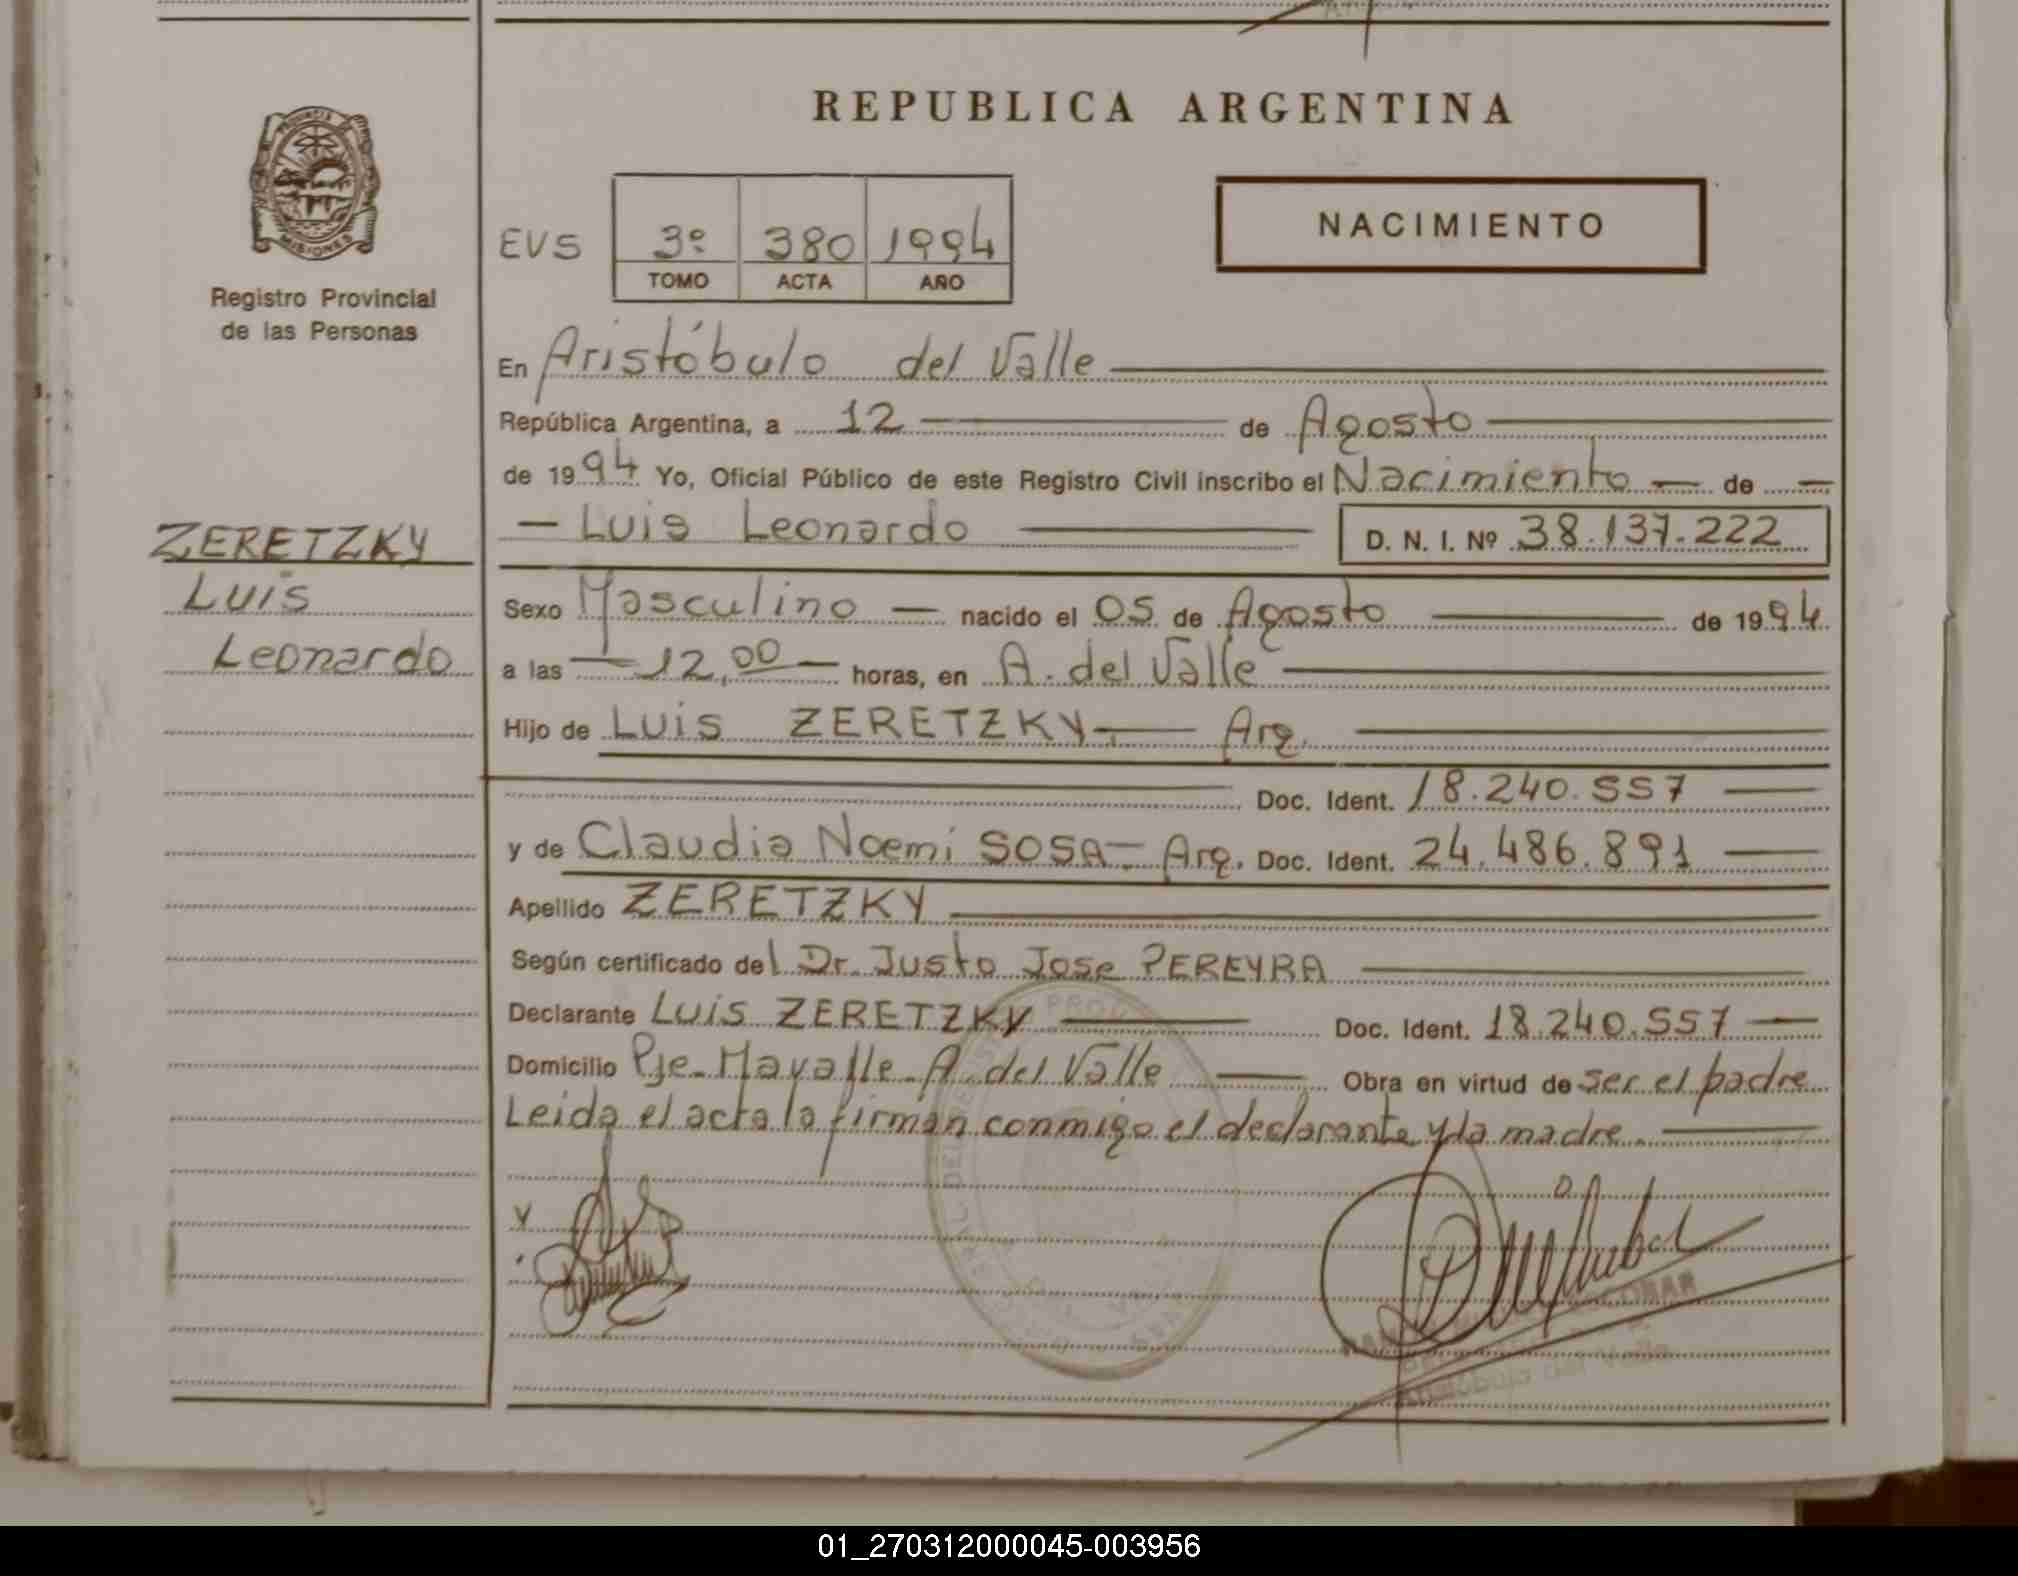 REPUBLICA ARGENTINA
PROVINCIA DE
MISIONES
Registro Provincial
de las Personas
EVS 3º 380 1994
TOMO ACTA AÑO
NACIMIENTO
En Aristóbulo del Valle
República Argentina, a 12 de Agosto
de 1994 Yo, Oficial Público de este Registro Civil inscribo el Nacimiento de
Luis Leonardo D. N. I. Nº 38.137.222
ZERETZKY
Luis
Leonardo
Sexo Masculino nacido el 05 de Agosto de 1994
a las 12,00 horas, en A. del Valle
Hijo de Luis ZERETZKY Arg.
Doc. Ident. 18.240.557
y de Claudia Noemi SOSA Arg. Doc. Ident. 24.486.891
Apellido ZERETZKY
Según certificado del Dr. Justo Jose PEREYRA
Declarante Luis ZERETZKY Doc. Ident. 18.240.557
Domicilio Pje. A. del Valle Obra en virtud de ser el padre
Leida el acta la firman conmigo el declarante y la madre.
ESCOBAR
Aristóbulo del Valle
01_270312000045-003956